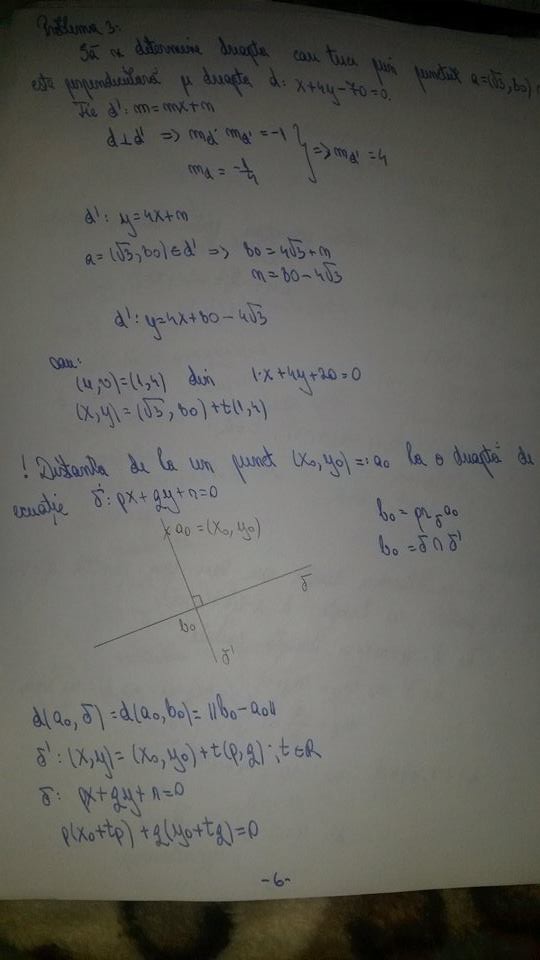 Problema 3:
Să se determine dreapta care trece prin punctul a=(√3, b0)
este perpendiculară pe dreapta d: x+4y-70=0.
Fie d': m=mx+n
d⊥d' => md' md' =-1
md = -1/4 } => md' = 4
d': y=4x+n
a=(√3, b0)∈d' => b0=4√3+n
n=b0-4√3
d': y=4x+b0-4√3
sau:
(u,v)=(1,4) din 1·x+4y+20=0
(x,y)=(√3, b0)+t(1,4)
! Distanta de la un punct (x0,y0)=:a0 la o dreaptă de
ecuație δ: px+qy+r=0
b0=prδ a0
b0=δ∩δ'
x a0=(x0,y0)
δ
b0
δ'
d(a0,δ)=d(a0,b0)=||b0-a0||
δ': (x,y)=(x0,y0)+t(p,q); t∈R
δ: px+qy+r=0
p(x0+tp)+q(y0+tq)=0
-6-